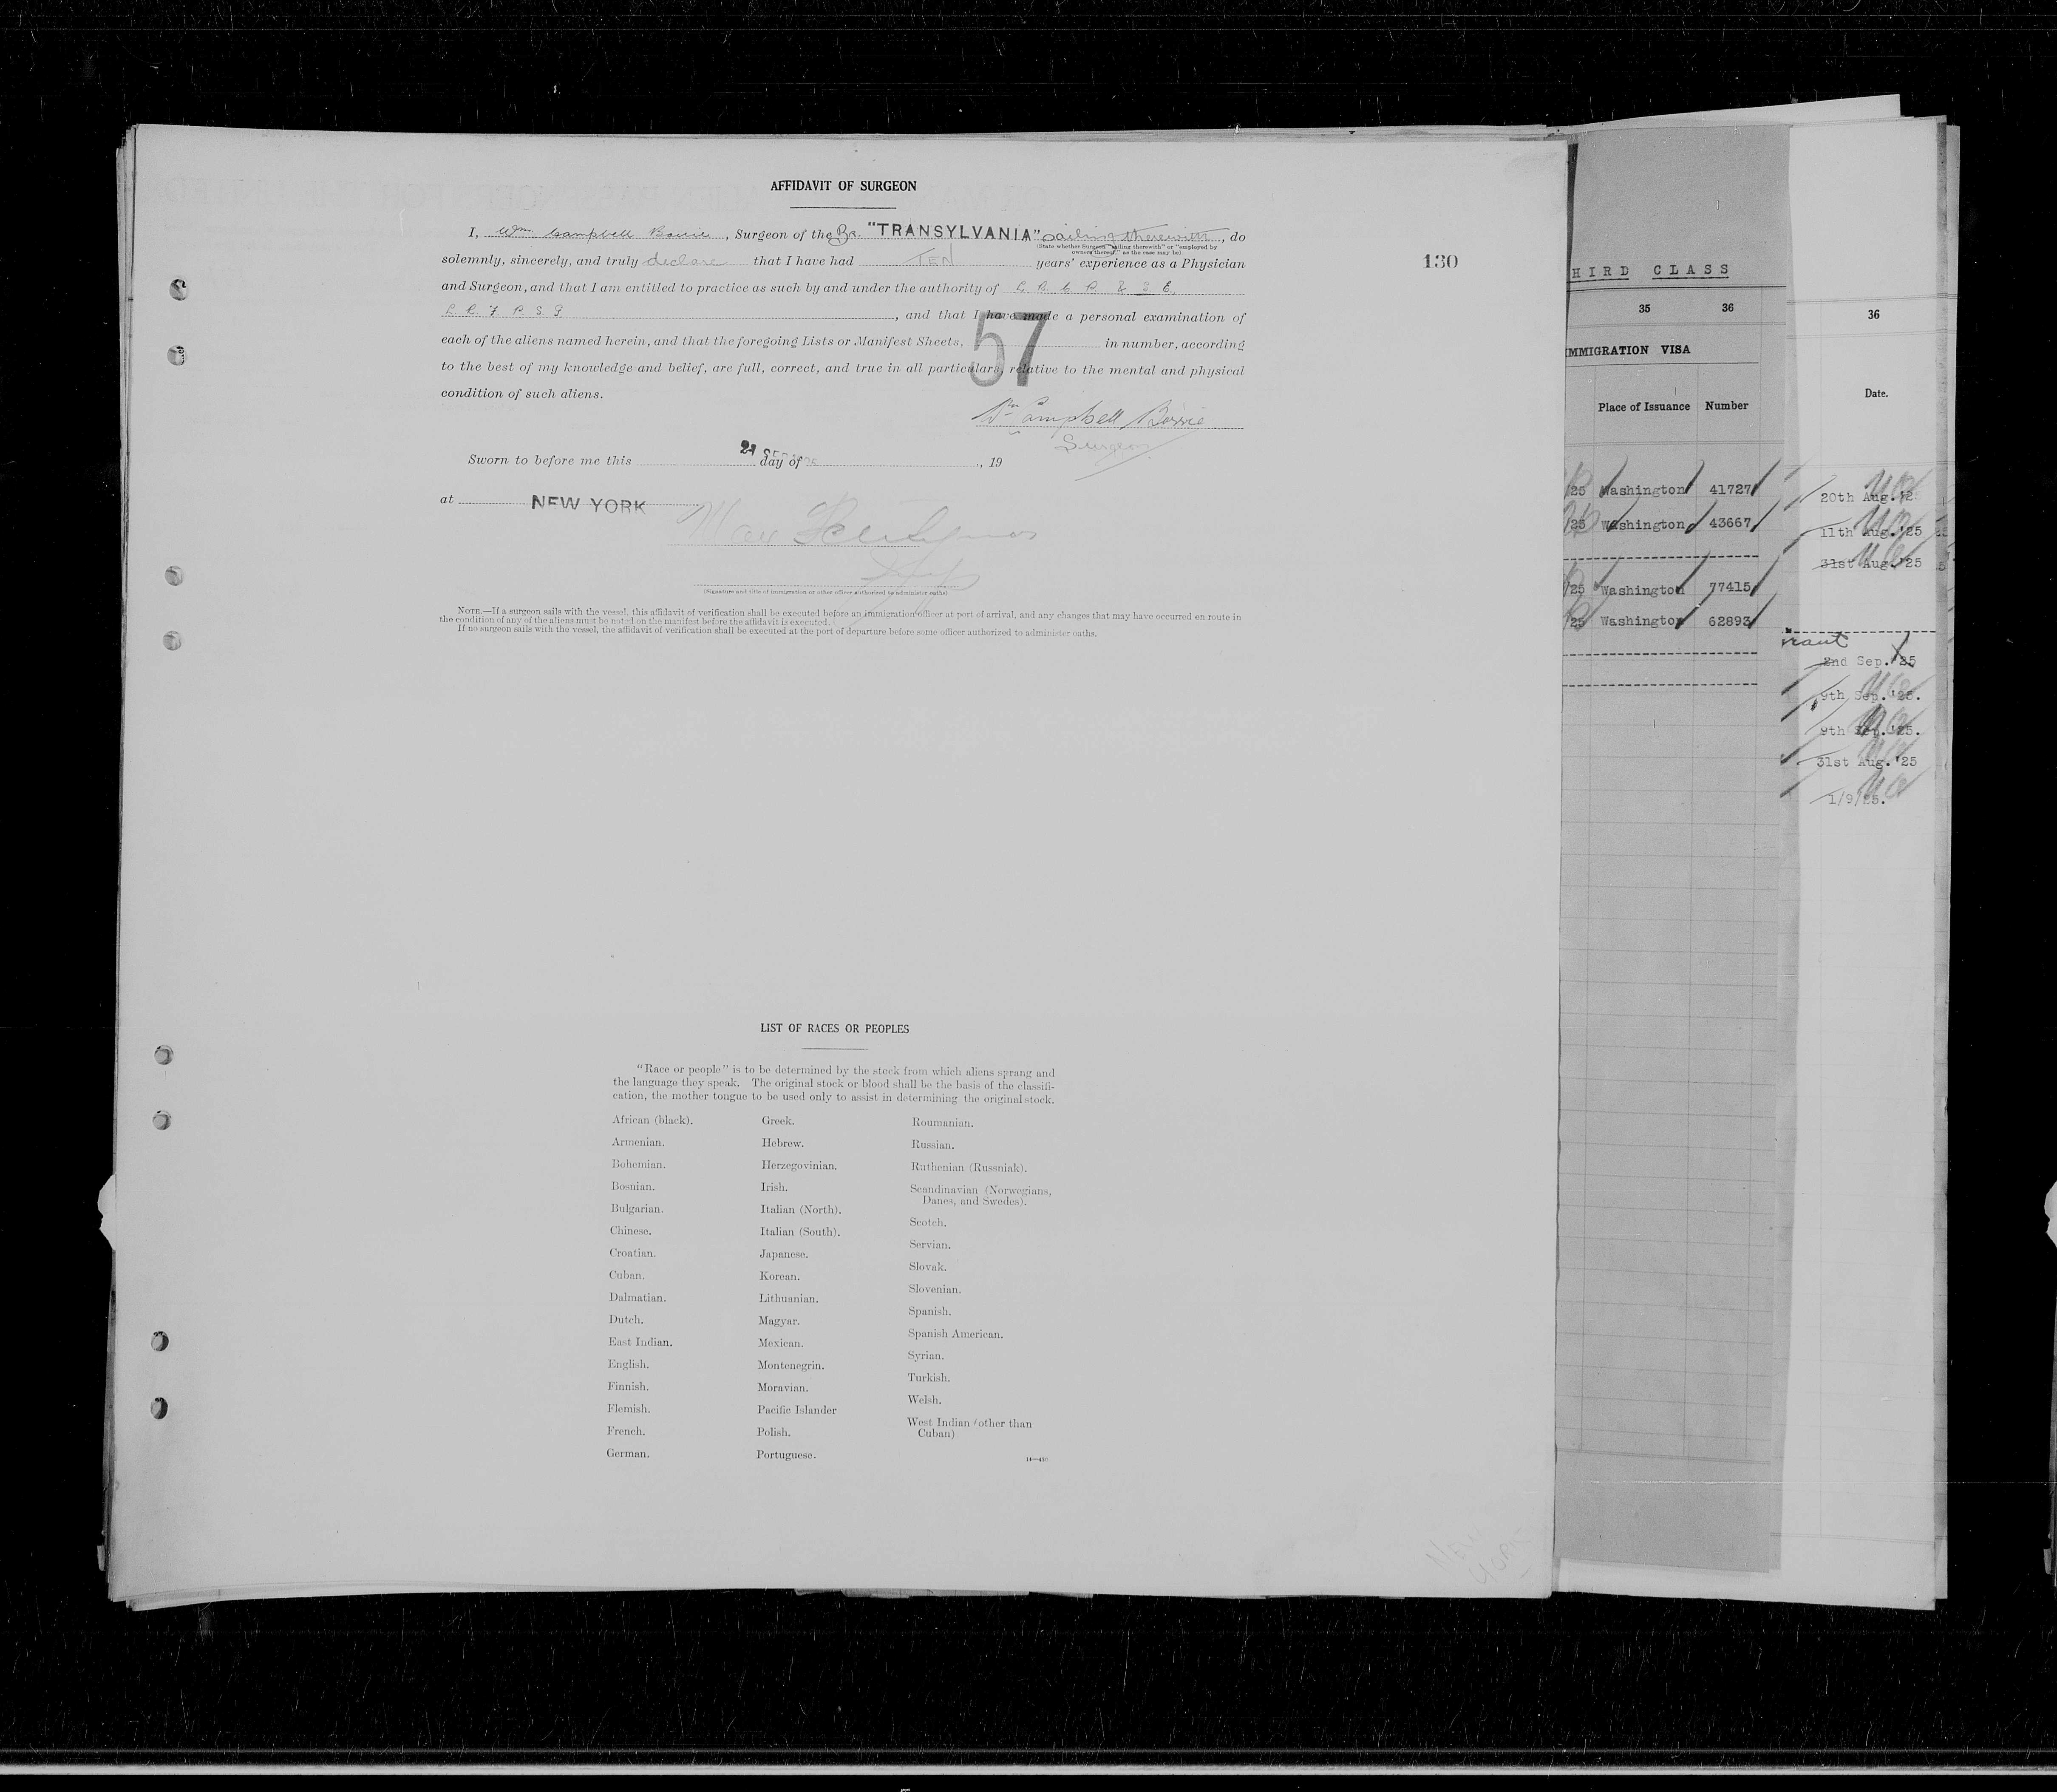 AFFIDAVIT OF SURGEON
I, Wm Campbell Borrie, Surgeon of the Br. "TRANSYLVANIA" sailing therewith, do
(State whether Surgeon "sailing therewith" or "employed by
owners thereof," as the case may be)
solemnly, sincerely, and truly declare that I have had TEN years' experience as a Physician
and Surgeon, and that I am entitled to practice as such by and under the authority of
, and that I have made a personal examination of
each of the aliens named herein, and that the foregoing Lists or Manifest Sheets, 57 in number, according
to the best of my knowledge and belief, are full, correct, and true in all particulars, relative to the mental and physical
condition of such aliens.
Wm Campbell Borrie
Surgeon
Sworn to before me this 21 SEP day of 25, 19
at NEW YORK
(Signature and title of immigration or other officer authorized to administer oaths)
NOTE.—If a surgeon sails with the vessel, this affidavit of verification shall be executed before an immigration officer at port of arrival, and any changes that may have occurred en route in
the condition of any of the aliens must be noted on the manifest before the affidavit is executed.
If no surgeon sails with the vessel, the affidavit of verification shall be executed at the port of departure before some officer authorized to administer oaths.
130
LIST OF RACES OR PEOPLES
"Race or people" is to be determined by the stock from which aliens sprang and
the language they speak. The original stock or blood shall be the basis of the classifi-
cation, the mother tongue to be used only to assist in determining the original stock.
African (black).
Armenian.
Bohemian.
Bosnian.
Bulgarian.
Chinese.
Croatian.
Cuban.
Dalmatian.
Dutch.
East Indian.
English.
Finnish.
Flemish.
French.
German.
Greek.
Hebrew.
Herzegovinian.
Irish.
Italian (North).
Italian (South).
Japanese.
Korean.
Lithuanian.
Magyar.
Mexican.
Montenegrin.
Moravian.
Pacific Islander
Polish.
Portuguese.
Roumanian.
Russian.
Ruthenian (Russniak).
Scandinavian (Norwegians,
Danes, and Swedes).
Scotch.
Servian.
Slovak.
Slovenian.
Spanish.
Spanish American.
Syrian.
Turkish.
Welsh.
West Indian (other than
Cuban)
NEW
YORK
HIRD CLASS
35 36
IMMIGRATION VISA
Place of Issuance Number
/25 Washington 41727
/25 Washington 43667
/25 Washington 77415
/25 Washington 62893
36
Date.
20th Aug.'25
11th Aug.'25
31st Aug.'25
2nd Sep.'25
9th Sep.'25.
9th Sep.'25.
31st Aug.'25
1/9/25.